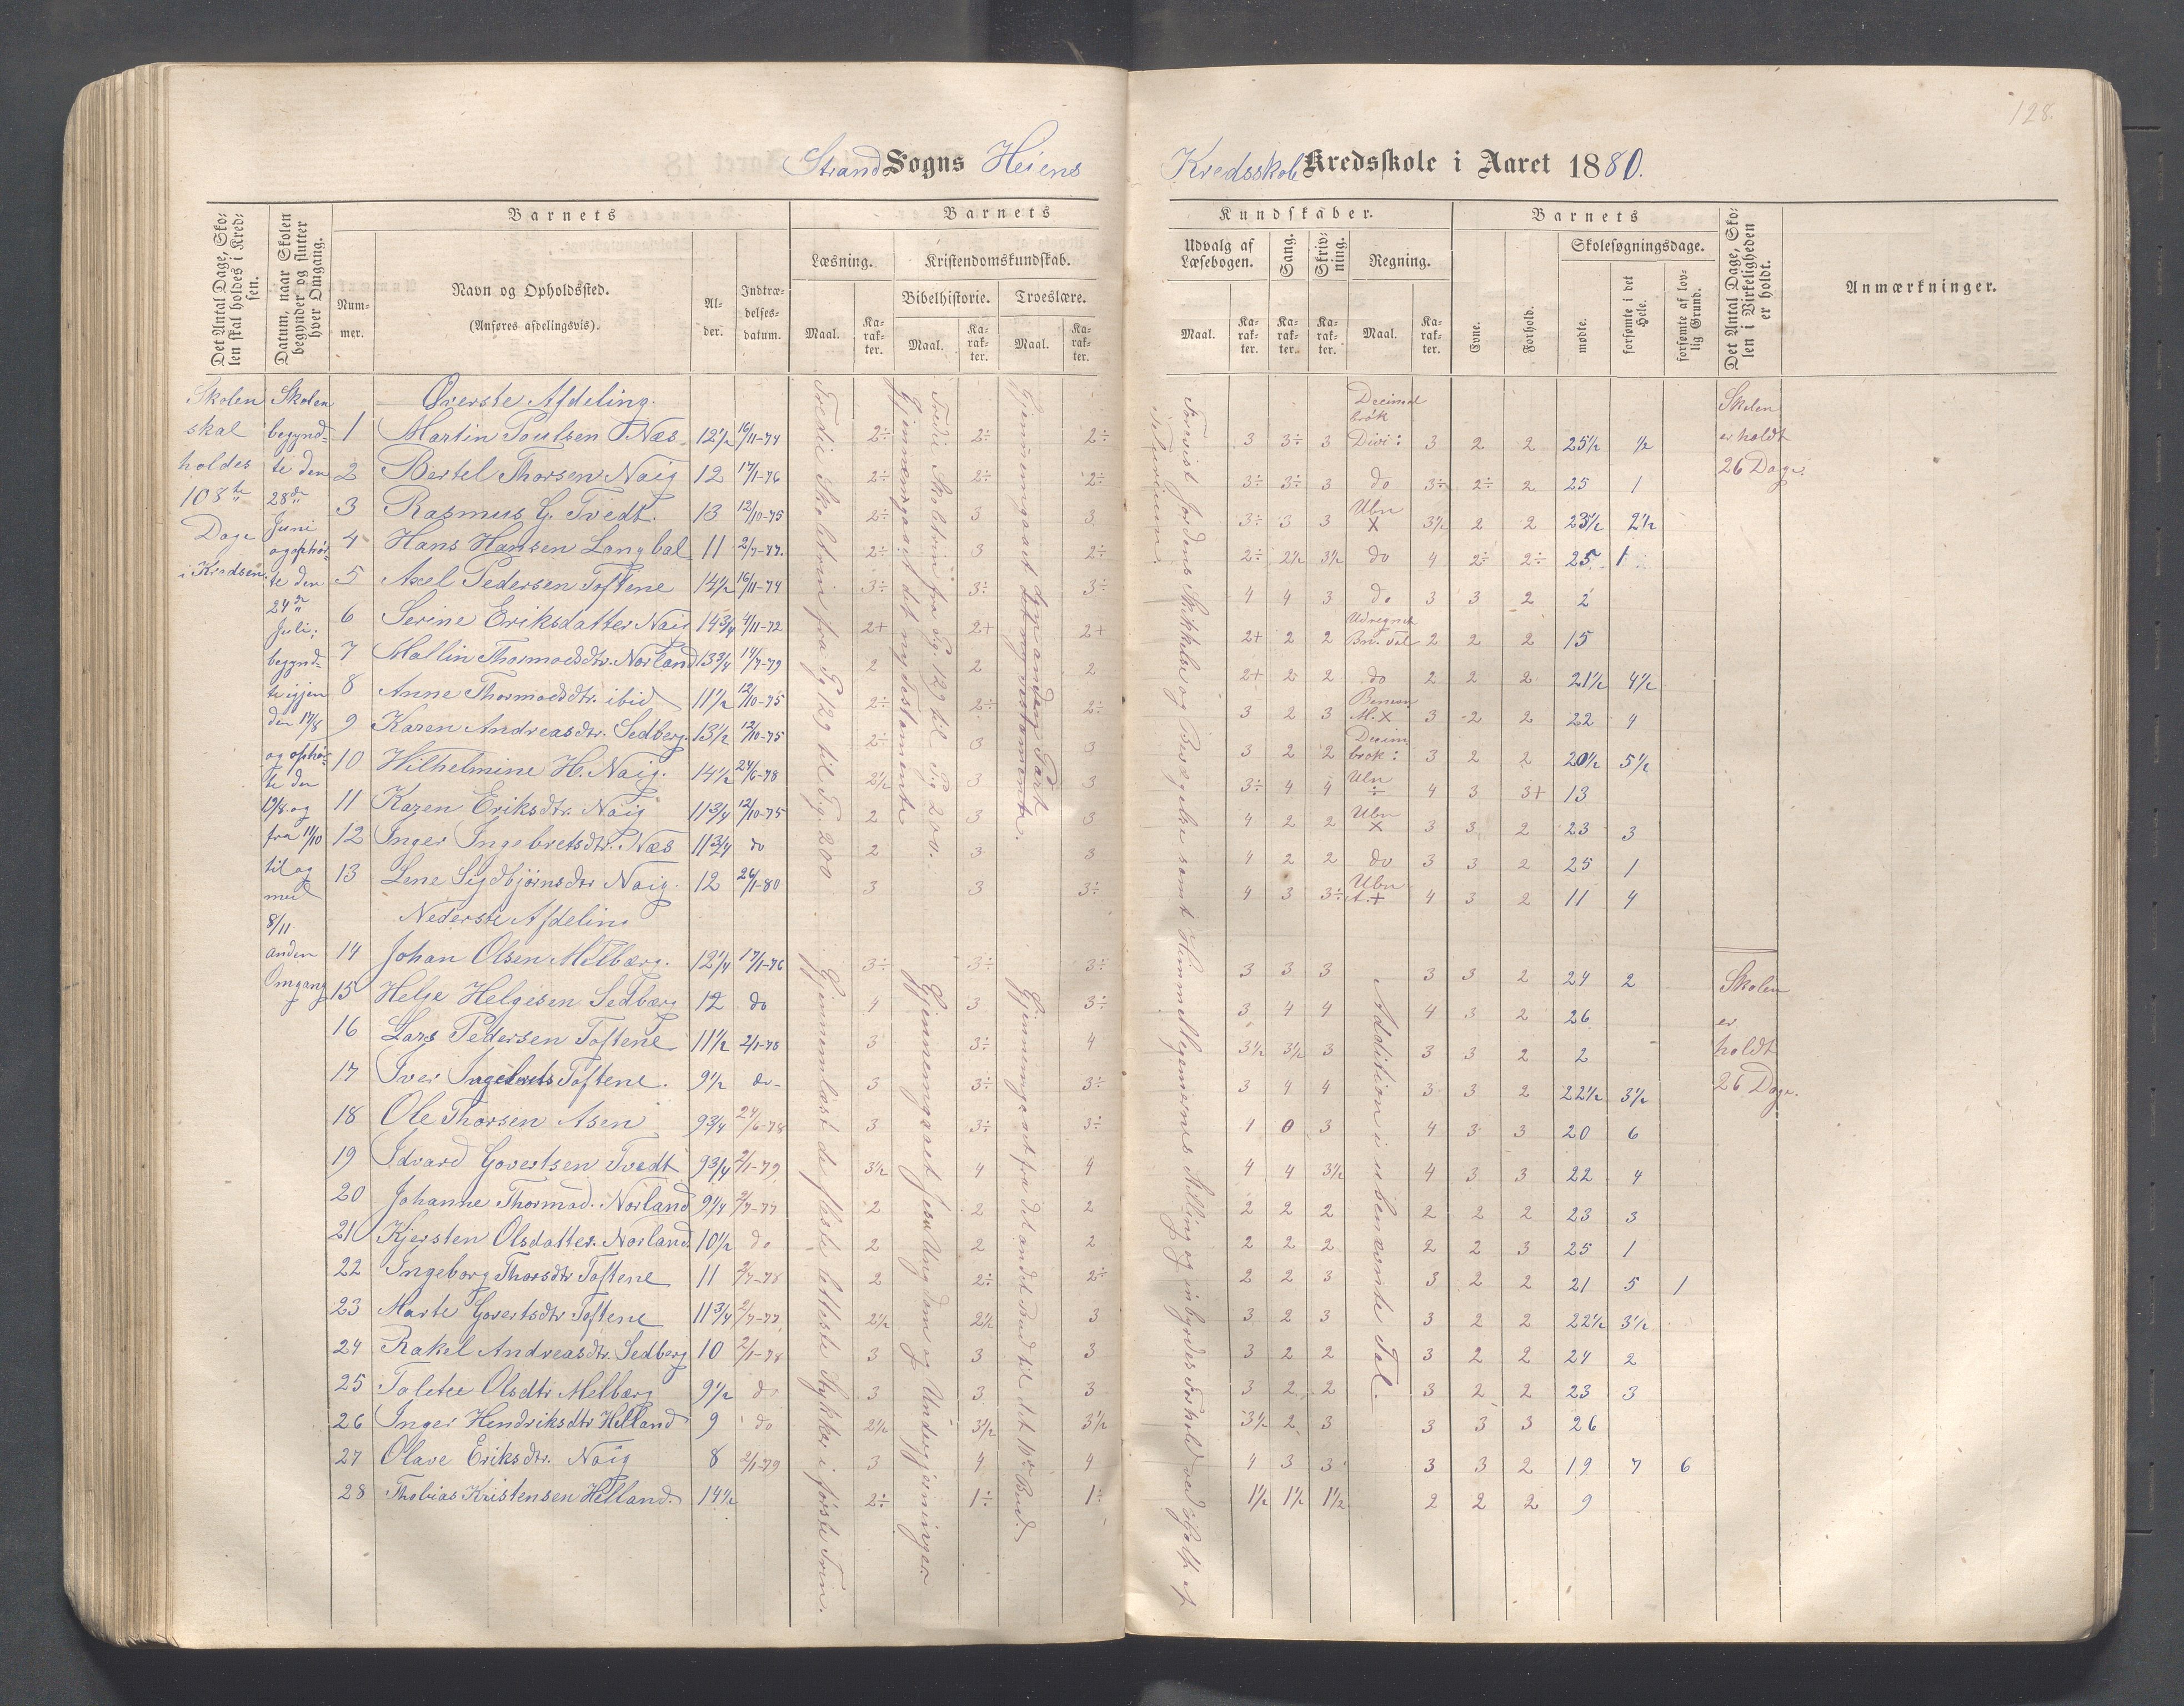 128.
Strand Sogns Heiens Kredsskole Kredsskole i Aaret 1880.
Det Antal Dage, Skolen skal holdes i Kredsen.
Datum, naar Skolen begynder og slutter hver Omgang.
Barnets
Nummer.
Navn og Opholdssted.
(Anføres afdelingsvis).
Alder.
Indtrædelsesdatum.
Barnets
Læsning.
Maal.
Karakter.
Kristendomskundskab.
Bibelhistorie.
Maal.
Karakter.
Troeslære.
Maal.
Karakter.
Kundskaber.
Udvalg af Læsebogen.
Maal.
Karakter.
Sang.
Karakter.
Skrivning.
Karakter.
Regning.
Maal.
Karakter.
Barnets
Evne.
Forhold.
Skolesøgningsdage.
mødte.
forsømte i det Hele.
forsømte af lovlig Grund.
Det Antal Dage, Skolen i Virkeligheden er holdt.
Anmærkninger.
Skolen
skal
holdes
108te
Dage
i Kredsen.
Skolen
begynd-
te den
28de
Juni
og ophør-
te den
24de
Juli;
begynd-
te igjen
den 17/8
og ophør-
te den
19/8 og
fra 11/10
til og
med
8/11
anden
Omgang
Øverste Afdeling.
1 Martin Poulsen Næs 12 1/2 16/11-74 2÷ 2÷ 2÷ 3 3÷ 3 Decimal brøk Divi: 3 2 2 25 1/2 1/2
2 Bertel Thorsen Naig 12 17/1-76 2÷ 2÷ 2÷ 3÷ 3÷ 3 do 3÷ 2÷ 2 25 1
3 Rasmus G. Tvedt. 13 12/10-75 2÷ 3 3 3÷ 3 3 Ubn X 3 1/2 2 2 23 1/2 2 1/2
4 Hans Hansen Langbal 11 2/7-77. 2÷ 3 2÷ 2÷ 2 1/2 3 1/2 do 4 2÷ 2÷ 25 1
5 Axel Pedersen Toftene 14 1/2 16/11-74 3÷ 3÷ 3÷ 4 4 3 do 3 3 2 2
6 Serine Eriksdatter Naig 14 3/4 4/11-72 2+ 2+ 2+ 2+ 2 2 2 2 2 15
7 Mallin Thormodsdtr. Norland 13 3/4 14/7-79 2 2 2 2+ 2 2 do 2 2 2 21 1/2 4 1/2
8 Anne Thormodsdtr. ibid 11 1/2 12/10-75 2÷ 2÷ 2÷ 3 2 3 3 2 2 22 4
9 Karen Andreasdtr. Sedberg. 13 1/2 12/10-75 2÷ 3 3 3 2 2 Decim brøk: 3 2 2 20 1/2 5 1/2
10 Wilhelmine H. Naig. 14 1/2 24/6-78 2 1/2 3 3 3÷ 4 4 Ubn ÷ 4 3 3+ 13
11 Karen Eriksdtr. Naig 11 3/4 12/10-75 2 3 3 4 2 2 Ubn X 3 3 2 23 3
12 Inger Ingebretsdtr. Næs 11 3/4 do 2 3 3 4 2 2 do 3 3 2 25 1
13 Lene Sigdbjørnsdtr Naig. 12 26/1-80 3 3 3÷ 4 3 3÷ Ubn A.+ 4 3 2 11 4
Nederste Afdeling
14 Johan Olsen Melbærg. 12 1/4 17/1-76 3÷ 3÷ 3÷ 3 3 3 3 3 2 24 2
15 Helge Helgesen Sedberg 12 do 4 3 3÷ 3 4 4 4 3 2 26
16 Lars Pedersen Toftene 11 1/2 2/1-78 3 3÷ 4 3 1/2 3 1/2 3 3 3 2 2
17 Iver Ingebrets Toftene. 9 1/2 do- 3 3÷ 3÷ 3 4 4 3 3 2 22 1/2 3 1/2
18 Ole Thorsen Asen 9 3/4 24/6-78 3 3÷ 3÷ 1 0 3 4 3 3 20 6
19 Edvard Govertsen Tvedt 9 3/4 2/1-79 3 1/2 4 4 4 4 3 1/2 4 3 3 22 4
20 Johanne Thormod. Norland 9 1/4 2/7-77 2 2 2 2 2 2 2 2 2 23 3
21 Kjersten Olsdatter Norland 10 1/2 do 2 2 2 2 2 2 2 2 3 25 1
22 Ingeborg Thorsdtr Toftene 11 2/7-78 2 2÷ 2÷ 2 2 3 3 2 2 21 5 1
23 Marte Govertsdtr Toftene 11 3/4 2/7-77 2 1/2 2 1/2 3 3 2 3 3 2 2 22 1/2 3 1/2
24 Rakel Andreasdtr. Sedberg 10 2/1-78 3 3 3 3 2 2 3 2 2 24 2
25 Olsdtr Melbærg 9 1/2 do 3 3 3 3 2 2 3 2 2 23 3
26 Inger Hendriksdtr Helland 9 do 2 1/2 3 1/2 3 1/2 3 1/2 2 3 3 3 3 26
27 Olave Eriksdtr. Naig 8 2/1-79 3 4 4 4 3 3 3 3 2 19 7 6
28 Thobias Kristensen Helland. 14 1/2 2÷ 1÷ 1÷ 1 1/2 1 1/2 1 1/2 2 2 2 9
Tredie Skoletrin fra Pg 129 til Pg. 200
Gjennemlæst de fleste letteste Stykker i første Trin.
Gjennemgaaet det nye Testamente
Tredie Skoletrin fra Pg. 129 til Pg 200.
Gjennemgaaet Jesu Ungdom og Undergjerninger.
Gjennemgaaet den anden Part
Gjennemgaaet fra det andet Bud til det 10de Bud.
Forvist Jordens Skikkelse og Bevægelse samt Himmellegemernes Stilling og inbyrdes Forhold ved Hjælp af
Addition i ubenævnte Tal.
Skolen
er holdt
26 Dage.
Skolen
er
holdt
26 Dage.